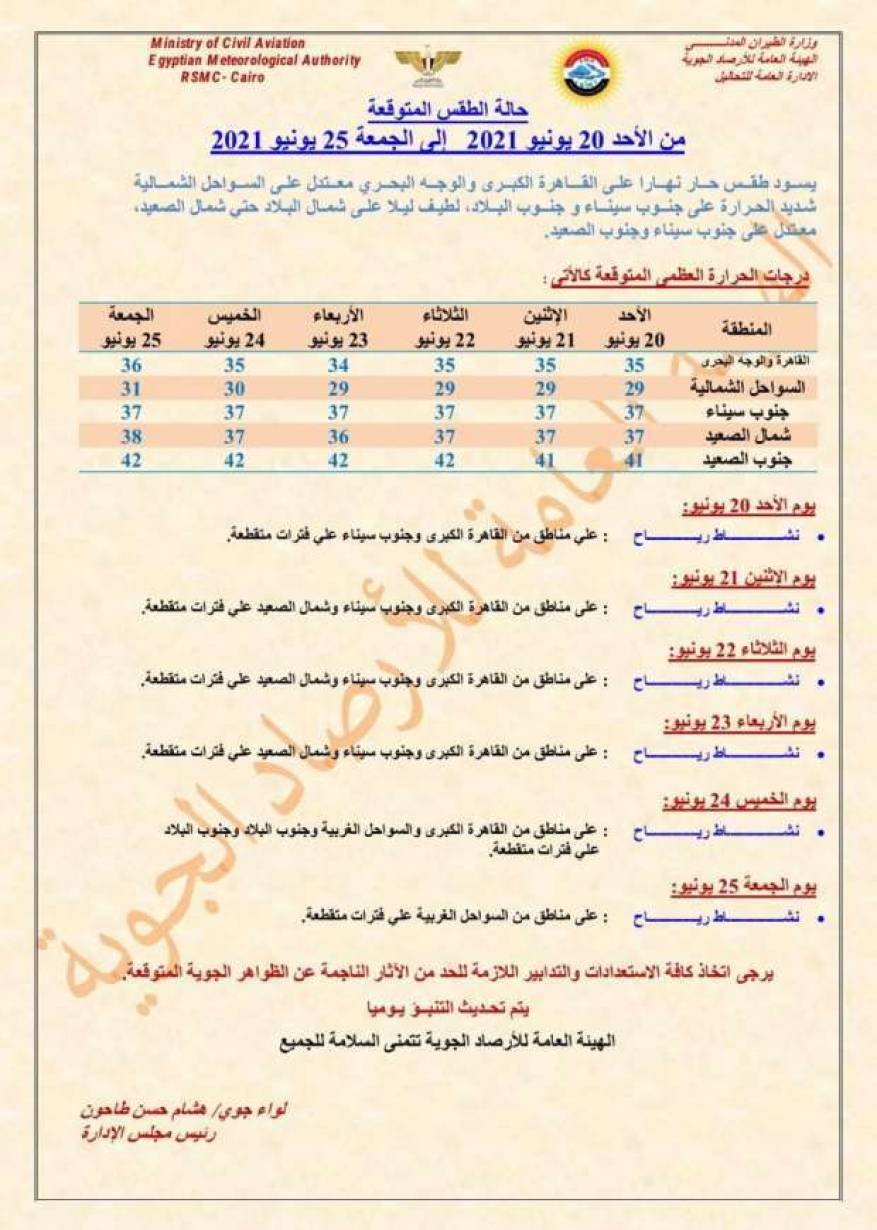 Ministry of Civil Aviation
Egyptian Meteorological Authority
RSMC- Cairo
وزارة الطيران المدنـــــي
الهيئة العامة للأرصاد الجوية
الادارة العامة للتحاليل
حالة الطقس المتوقعة
من الأحد 20 يونيو 2021 إلى الجمعة 25 يونيو 2021
يسـود طقـس حـار نهـارا علـى القـاهرة الكبـرى والوجـه البحـري معـتدل علـى السـواحل الشـمالية
شديد الحرارة على جنـوب سينـاء و جنـوب البـلاد، لطيـف ليـلا علـى شمـال البـلاد حتي شمال الصعيد،
معتدل على جنوب سيناء وجنوب الصعيد.
درجات الحرارة العظمى المتوقعة كالأتى :
المنطقة الأحد الإثنين الثلاثاء الأربعاء الخميس الجمعة
20 يونيو 21 يونيو 22 يونيو 23 يونيو 24 يونيو 25 يونيو
القاهرة والوجه البحرى 35 35 35 34 35 36
السواحل الشمالية 29 29 29 29 30 31
جنوب سيناء 37 37 37 37 37 37
شمال الصعيد 37 37 37 36 37 38
جنوب الصعيد 41 41 42 42 42 42
يوم الأحد 20 يونيو:
• نشـــــــاط ريـــــــاح : علي مناطق من القاهرة الكبرى وجنوب سيناء علي فترات متقطعة.
يوم الإثنين 21 يونيو:
• نشـــــــاط ريـــــــاح : على مناطق من القاهرة الكبرى وجنوب سيناء وشمال الصعيد علي فترات متقطعة.
يوم الثلاثاء 22 يونيو:
• نشـــــــاط ريـــــــاح : على مناطق من القاهرة الكبرى وجنوب سيناء وشمال الصعيد علي فترات متقطعة.
يوم الأربعاء 23 يونيو:
• نشـــــــاط ريـــــــاح : على مناطق من القاهرة الكبرى وجنوب سيناء وشمال الصعيد علي فترات متقطعة.
يوم الخميس 24 يونيو:
• نشـــــــاط ريـــــــاح : على مناطق من القاهرة الكبرى والسواحل الغربية وجنوب البلاد وجنوب البلاد
علي فترات متقطعة.
يوم الجمعة 25 يونيو:
• نشـــــــاط ريـــــــاح : على مناطق من السواحل الغربية علي فترات متقطعة.
يرجى اتخاذ كافة الاستعدادات والتدابير اللازمة للحد من الآثار الناجمة عن الظواهر الجوية المتوقعة.
يتم تحديث التنبـؤ يوميا
الهيئة العامة للأرصاد الجوية تتمنى السلامة للجميع
لواء جوي/ هشام حسن طاحون
رئيس مجلس الإدارة
الهيئة العامة للأرصاد الجوية